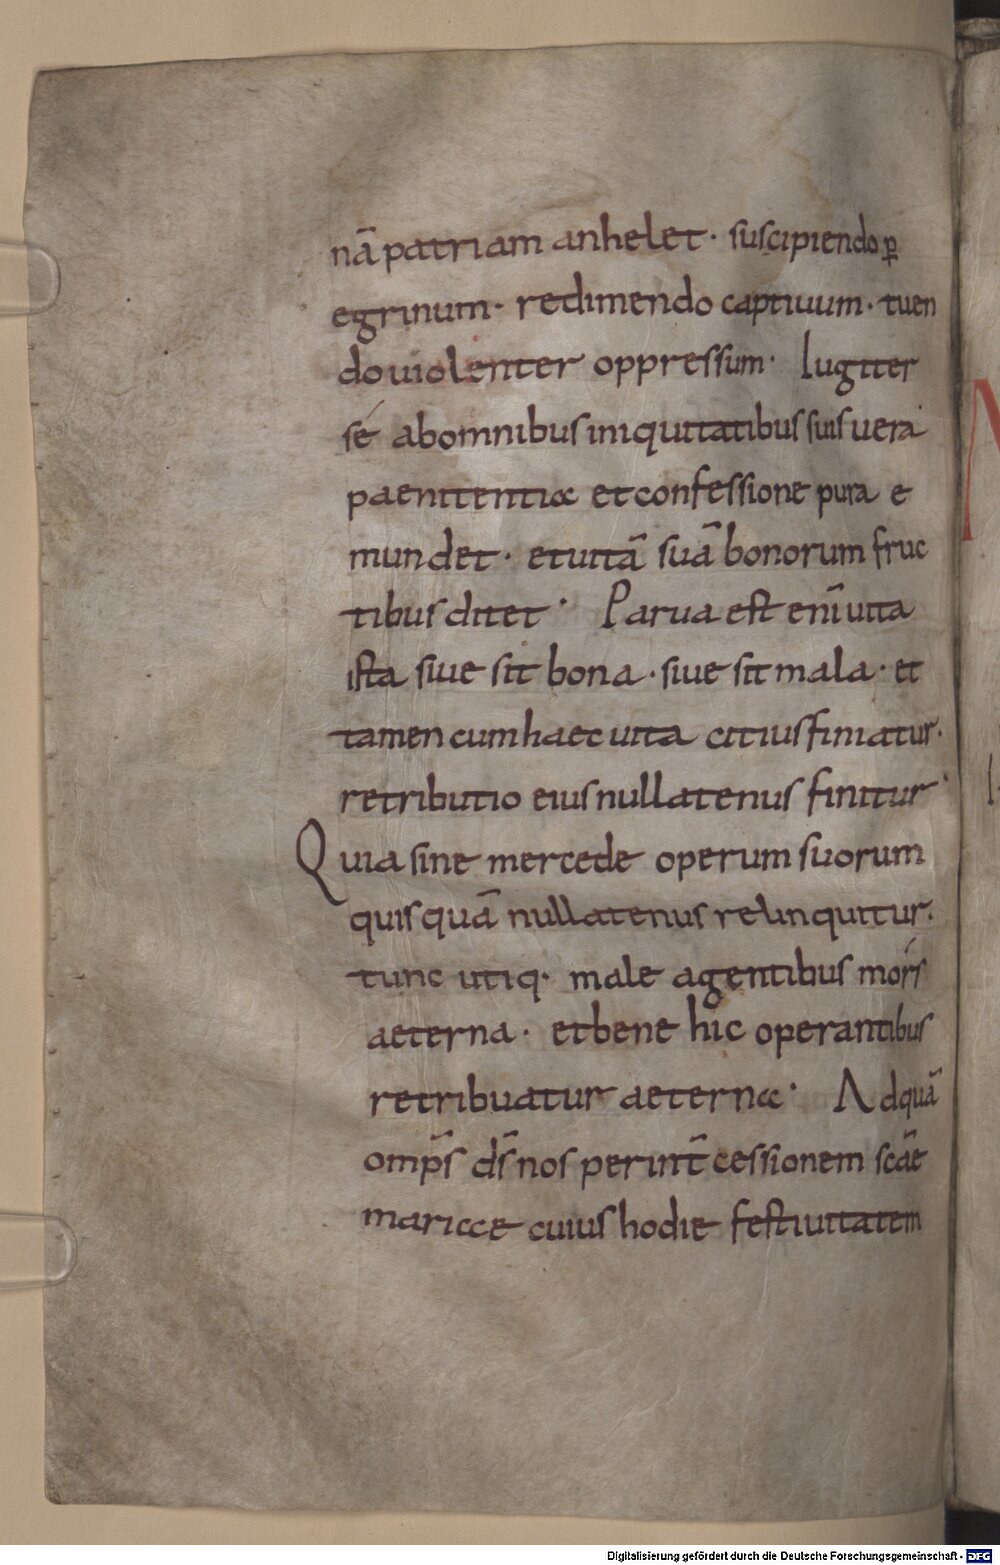 nā patriam anhelet · suscipiendo ꝑ
egrinum · redimendo captiuum · tuen
do uiolenter oppressum · Iugiter
sé abomnibus iniquitatibus suis uera
paenitentia et confessione pura e
mundet · et uitā suā bonorum fruc
tibus ditet · Parua est enī uita
ista siue sit bona · siue sit mala · et
tamen cum haec uita citius finiatur ·
retributio eius nullatenus finitur ·
Quia sine mercede operum suorum
quisquā nullatenus relinquitur ·
tunc utiq· male agentibus mors
aeterna · et bene hic operantibus
retribuatur aeterna · Ad quā
omp̄s d̄s nos per int̄cessionem scāe
mariae cuius hodie festiuitatem
Digitalisierung gefördert durch die Deutsche Forschungsgemeinschaft - DFG